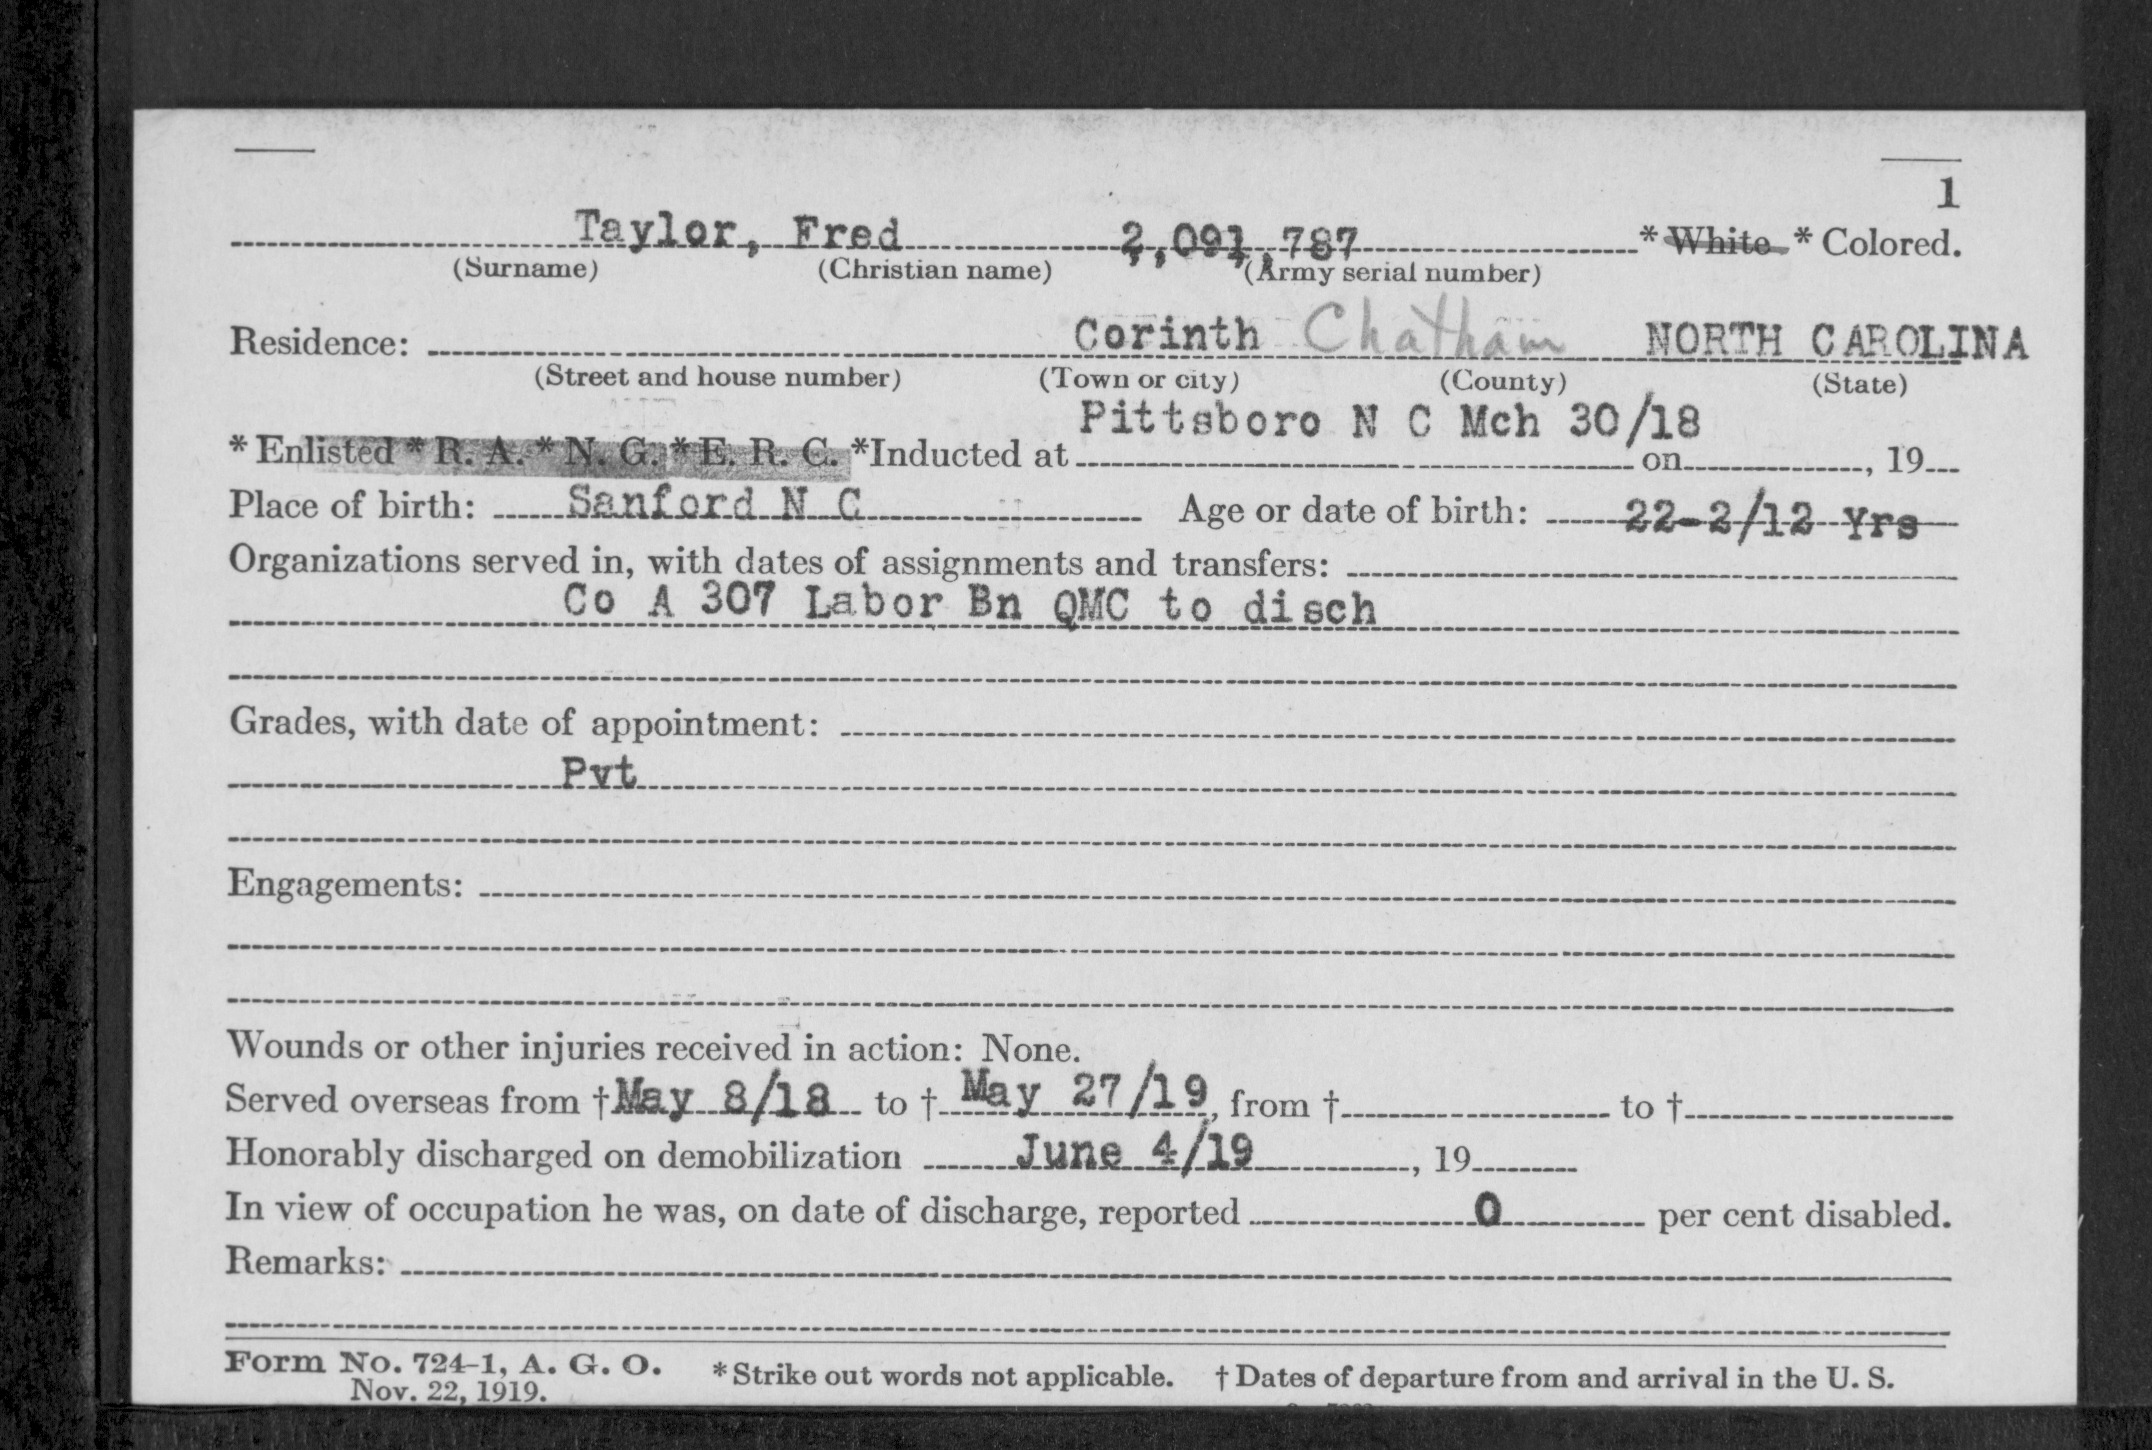 1
Taylor, Fred 2,091,787 * White * Colored.
(Surname) (Christian name) (Army serial number)
Residence: Corinth Chatham NORTH CAROLINA
(Street and house number) (Town or city) (County) (State)
Pittsboro N C Mch 30/18
* Enlisted * R. A. * N. G. * E. R. C. *Inducted at on , 19
Place of birth: Sanford N C Age or date of birth: 22-2/12 Yrs
Organizations served in, with dates of assignments and transfers:
Co A 307 Labor Bn QMC to disch
Grades, with date of appointment:
Pvt
Engagements:
Wounds or other injuries received in action: None.
Served overseas from † May 8/18 to † May 27/19, from † to †
Honorably discharged on demobilization June 4/19, 19
In view of occupation he was, on date of discharge, reported 0 per cent disabled.
Remarks:
Form No. 724-1, A. G. O. * Strike out words not applicable. † Dates of departure from and arrival in the U. S.
Nov. 22, 1919.